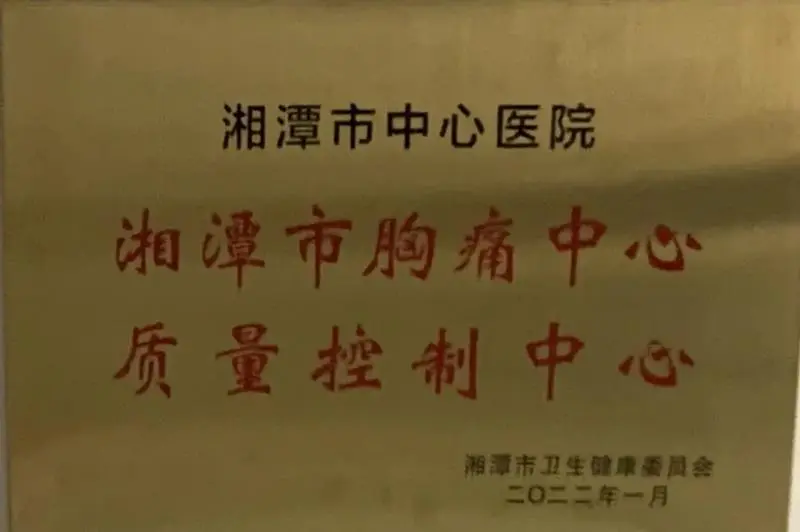 湘潭市中心医院
湘潭市胸痛中心
质量控制中心
湘潭市卫生健康委员会
二〇二二年一月